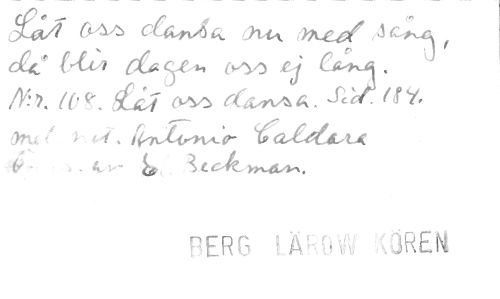 Låt oss dansa nu med sång,
då blir dagen oss ej lång.
N:r. 108. Låt oss dansa. Sid. 184.
mel not. Antonio Caldara
av E. Beckman.
BERG LÄROW KÖREN